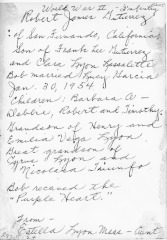 World War II - Infantry
Robert James Gutierrez
of San Fernando, California
Son of Frank Lee Gutierrez
and Clara Lyon Lassalette
Bob married Lucy Garcia
Jan. 30, 1954
Children: Barbara A -
Debbie, Robert and Timothy.
Grandson of Henry and
Emelia Vega Lyon
Great grandson of
Cyrus Lyon and
Nicolasa Triunfo
Bob received the
"Purple Heart"
From -
Estella Lyon Mese - Aunt